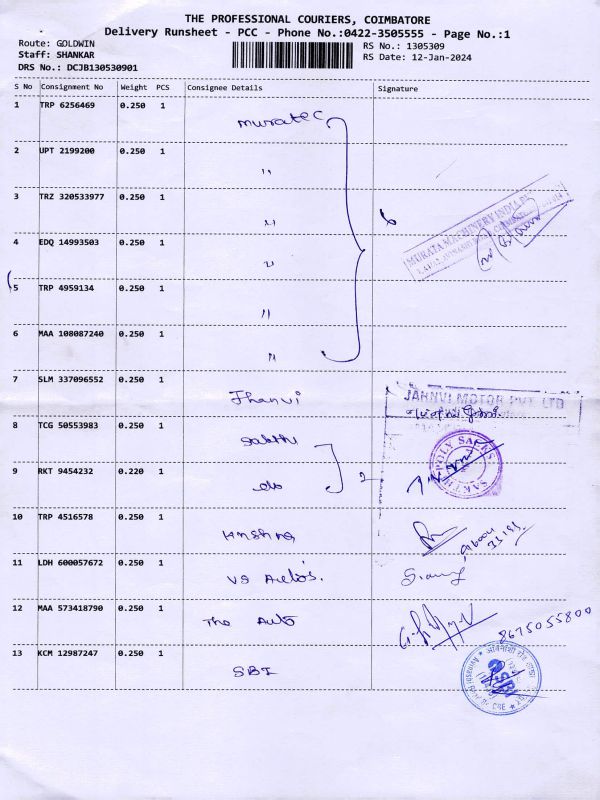 THE PROFESSIONAL COURIERS, COIMBATORE
Delivery Runsheet - PCC - Phone No.:0422-3505555 - Page No.:1
Route: GOLDWIN
Staff: SHANKAR
DRS No.: DCJB130530901
RS No.: 1305309
RS Date: 12-Jan-2024
S No Consignment No Weight PCS Consignee Details Signature
1 TRP 6256469 0.250 1 muratec
2 UPT 2199200 0.250 1 "
3 TRZ 320533977 0.250 1 "
4 EDQ 14993503 0.250 1 "
MURATA MACHINERY INDIA
5 TRP 4959134 0.250 1 "
6 MAA 108087240 0.250 1 "
7 SLM 337096552 0.250 1 Jhanvi
JAHNVI MOTOR PVT LTD
8 TCG 50553983 0.250 1 Sakthi
9 RKT 9454232 0.220 1 do 2
SAKTHI POLY SACKS
10 TRP 4516578 0.250 1 Krishna
11 LDH 600057672 0.250 1 VS Auto's.
12 MAA 573418790 0.250 1 The Auto
8675055800
13 KCM 12987247 0.250 1 SBI
SBI
CBE